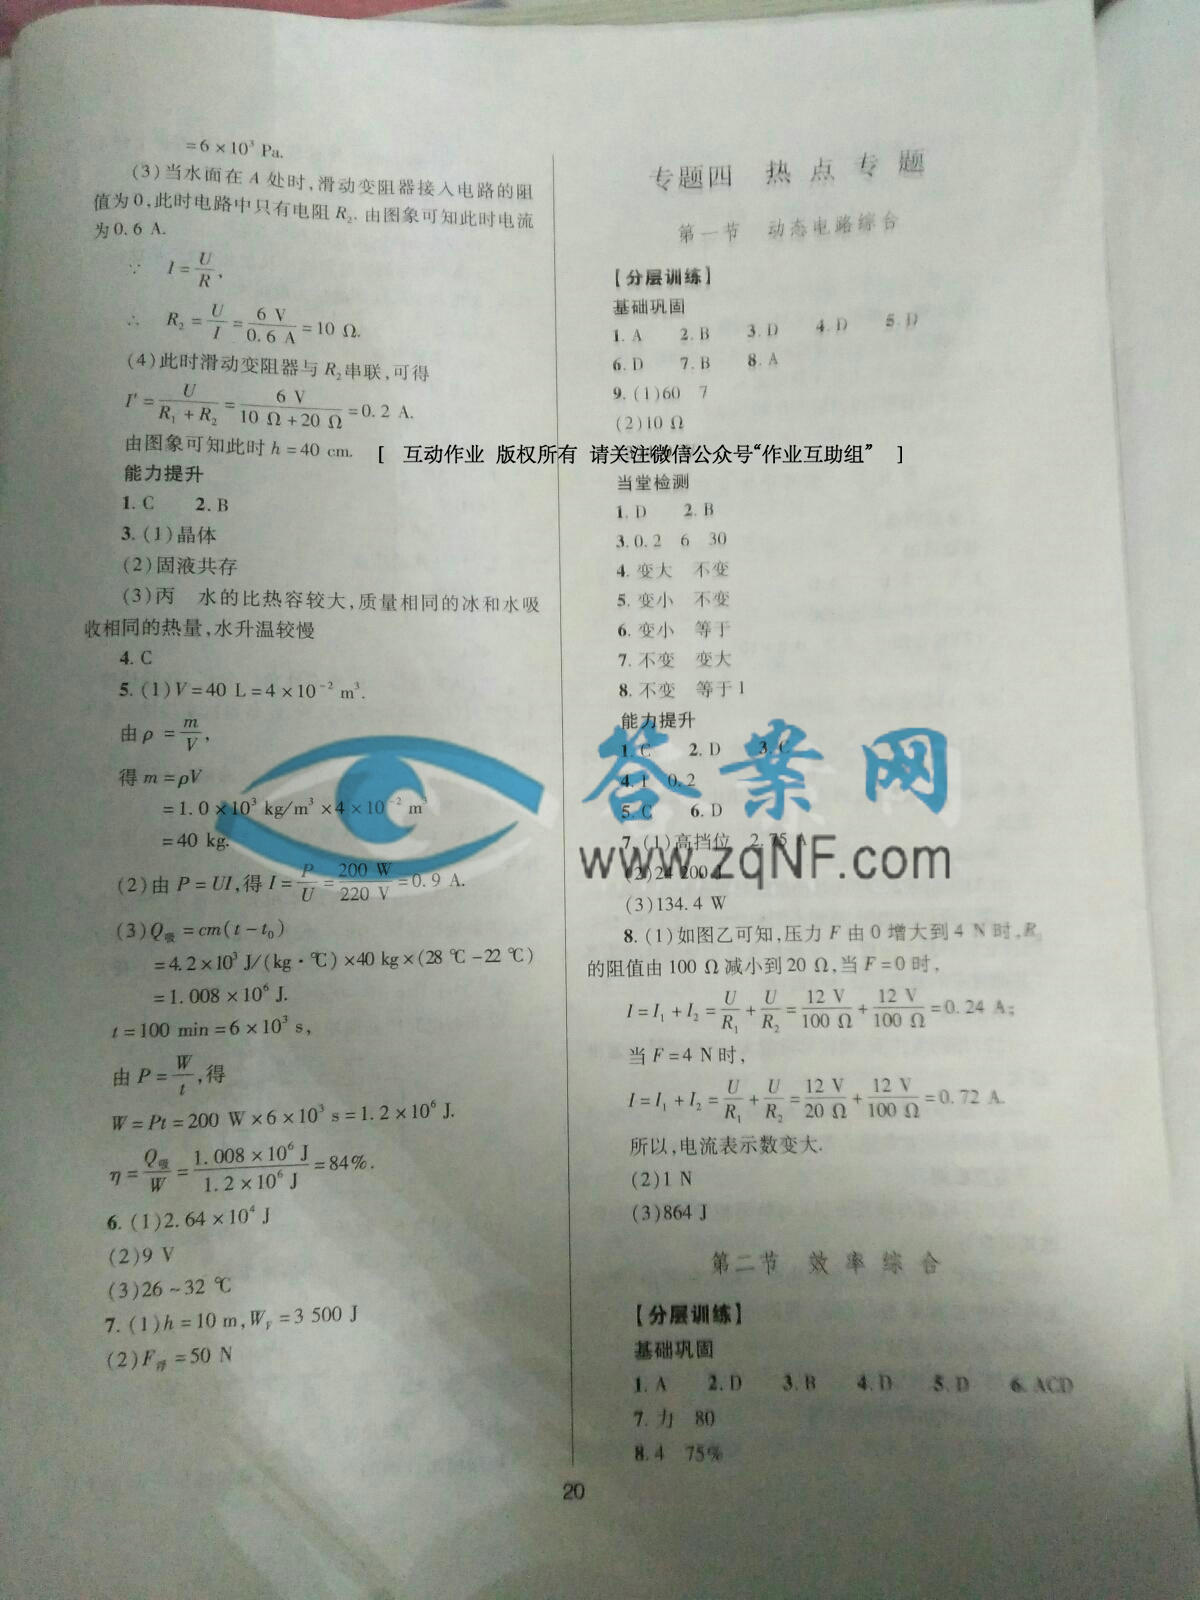 =6×10³ Pa.
(3)当水面在 A 处时,滑动变阻器接入电路的阻
值为0,此时电路中只有电阻 R₂. 由图象可知此时电流
为0.6 A.
∵ I=U/R,
∴ R₂=U/I=6 V/0.6 A=10 Ω.
(4)此时滑动变阻器与 R₂串联,可得
I′=U/(R₁+R₂)=6 V/(10 Ω+20 Ω)=0.2 A.
由图象可知此时 h=40 cm.
能力提升
1. C 2. B
3. (1)晶体
(2)固液共存
(3)丙 水的比热容较大,质量相同的冰和水吸
收相同的热量,水升温较慢
4. C
5. (1)V=40 L=4×10⁻² m³.
由ρ=m/V,
得 m=ρV
=1.0×10³ kg/m³×4×10⁻² m³
=40 kg.
(2)由 P=UI,得 I=P/U=200 W/220 V=0.9 A.
(3)Q吸=cm(t-t₀)
=4.2×10³ J/(kg·℃)×40 kg×(28 ℃-22 ℃)
=1.008×10⁶ J.
t=100 min=6×10³ s,
由 P=W/t,得
W=Pt=200 W×6×10³ s=1.2×10⁶ J.
η=Q吸/W=1.008×10⁶ J/1.2×10⁶ J=84%.
6. (1)2.64×10⁴ J
(2)9 V
(3)26~32 ℃
7. (1)h=10 m,W_F=3 500 J
(2)F浮=50 N
专题四 热点专题
第一节 动态电路综合
【分层训练】
基础巩固
1. A 2. B 3. D 4. D 5. D
6. D 7. B 8. A
9. (1)60 7
(2)10 Ω
[ 互动作业 版权所有 请关注微信公众号“作业互助组” ]
当堂检测
1. D 2. B
3. 0.2 6 30
4. 变大 不变
5. 变小 不变
6. 变小 等于
7. 不变 变大
8. 不变 等于1
能力提升
1. C 2. D 3. C
4. 1 0.2
5. C 6. D
7. (1)高挡位 2.75 A
(2)24 200 J
(3)134.4 W
8. (1)如图乙可知,压力 F 由 0 增大到 4 N 时,R₁
的阻值由 100 Ω 减小到 20 Ω,当 F=0 时,
I=I₁+I₂=U/R₁+U/R₂=12 V/100 Ω+12 V/100 Ω=0.24 A;
当 F=4 N 时,
I=I₁+I₂=U/R₁+U/R₂=12 V/20 Ω+12 V/100 Ω=0.72 A.
所以,电流表示数变大.
(2)1 N
(3)864 J
第二节 效率综合
【分层训练】
基础巩固
1. A 2. D 3. B 4. D 5. D 6. ACD
7. 力 80
8. 4 75%
20
答案网
www.zqNF.com